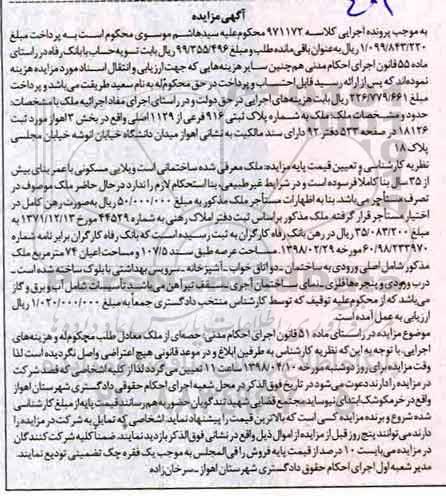 آگهی مزایده
به موجب پرونده اجرایی کلاسه ۹۷۱۱۷۲ محکوم علیه سیدهاشم موسوی محکوم است به پرداخت مبلغ
۱/۰۹۹/۸۴۳/۲۲۰ ریال به عنوان باقی مانده طلب و مبلغ ۹۹/۳۵۵/۴۹۶ ریال بابت تسویه حساب با بانک رفاه در راستای
ماده ۵۵ قانون اجرای احکام مدنی هم چنین سایر هزینه هایی که جهت ارزیابی و انتقال اسناد مورد مزایده هزینه
نموده اند که پس از ارائه رسید قابل احتساب و پرداخت در حق محکوم له به نام سعید طریقت می باشد و پرداخت
مبلغ ۲۲۶/۷۷۹/۶۶۱ ریال بابت هزینه های اجرایی در حق دولت و در راستای اجرای مفاد اجرائیه ملک با مشخصات:
حدود و مشخصات ملک: ملک به شماره پلاک ثبتی ۹۱۶ فرعی از ۱۱۲۹ اصلی واقع در بخش ۳ اهواز مورد ثبت
۱۸۱۲۶ در صفحه ۵۲۳ دفتر ۹۲ دارای سند مالکیت به نشانی اهواز میدان دانشگاه خیابان انوشه خیابان مجلسی
پلاک ۱۸
نظریه کارشناسی و تعیین قیمت پایه مزایده: ملک معرفی شده ساختمانی است ویلایی مسکونی با عمر بنای بیش
از ۳۵ سال بنا کاملاً فرسوده است و در شرایط غیرطبیعی، بنا استحکام لازم را ندارد در حال حاضر ملک موصوف در
تصرف مستأجر می باشد. بنا به اظهارات مستأجر ملک مذکور به مبلغ ۵۰/۰۰۰/۰۰۰ ریال به صورت رهن کامل در
اختیار مستأجر قرار گرفته. ملک مذکور بر اساس ثبت دفتر املاک رهنی به شماره ۴۴۵۲۹ مورخ ۱۳۷۱/۱۲/۱۳ به
مبلغ ۳۵/۰۸۳/۲۰۰ ریال در رهن بانک رفاه کارگران به ثبت رسیده است که بانک رفاه کارگران برابر نامه شماره
۶۰/۹۸/۲۳۳۹۷۰ مورخه ۱۳۹۸/۰۲/۲۹ مساحت عرصه طبق سند ۱۰۷/۵ و مساحت اعیان ۷۴ مترمربع ملک
مذکور شامل اصلی ورودی به ساختمان ـ دو اتاق خواب ـ آشپزخانه ـ سرویس بهداشتی با بلوک ساخته شده است ـ
درب ورودی و پنجره ها فلزی ـ نمای ساختمان آجری ـ سقف تیرآهن می باشند. تأسیسات شامل آب و برق و گاز
می باشد که از محکوم علیه توقیف که توسط کارشناس منتخب دادگستری جمعاً به مبلغ ۱/۰۲۰/۰۰۰/۰۰۰ ریال
ارزیابی به عمل آمده است.
موضوع مزایده در راستای ماده ۵۱ قانون اجرای احکام مدنی: حصه ای از ملک معادل طلب محکوم له و هزینه های
اجرایی. با توجه به این که نظریه کارشناسی به طرفین ابلاغ و در موعد قانونی هیچ اعتراضی واصل نگردیده است لذا
وقت مزایده برای روز دوشنبه مورخه ۱۳۹۸/۰۴/۱۰ ساعت ۱۱ تعیین می گردد لذا از کلیه اشخاصی که قصد شرکت
در مزایده را دارند دعوت می شود در تاریخ فوق الذکر در محل شعبه اجرای احکام حقوقی دادگستری شهرستان اهواز
واقع در خرمکوشک ابتدای نیوساید مجتمع قضایی شهید تندگویان حضور به هم رسانند قیمت پایه از مبلغ کارشناسی
شده شروع و برنده مزایده کسی است که بالاترین قیمت را پیشنهاد نماید. اشخاصی که تمایل به شرکت در مزایده را
دارند می توانند پنج روز قبل از مزایده از اموال ذیل واقع در نشانی فوق الذکر بازدید نمایند. ضمناً کلیه شرکت کنندگان
در مزایده می بایست ۱۰ درصد از قیمت پایه فروش را فی المجلس به موجب یک فقره چک تضمینی تودیع نمایند.
مدیر شعبه اول اجرای احکام حقوقی دادگستری شهرستان اهواز ـ سرخان زاده